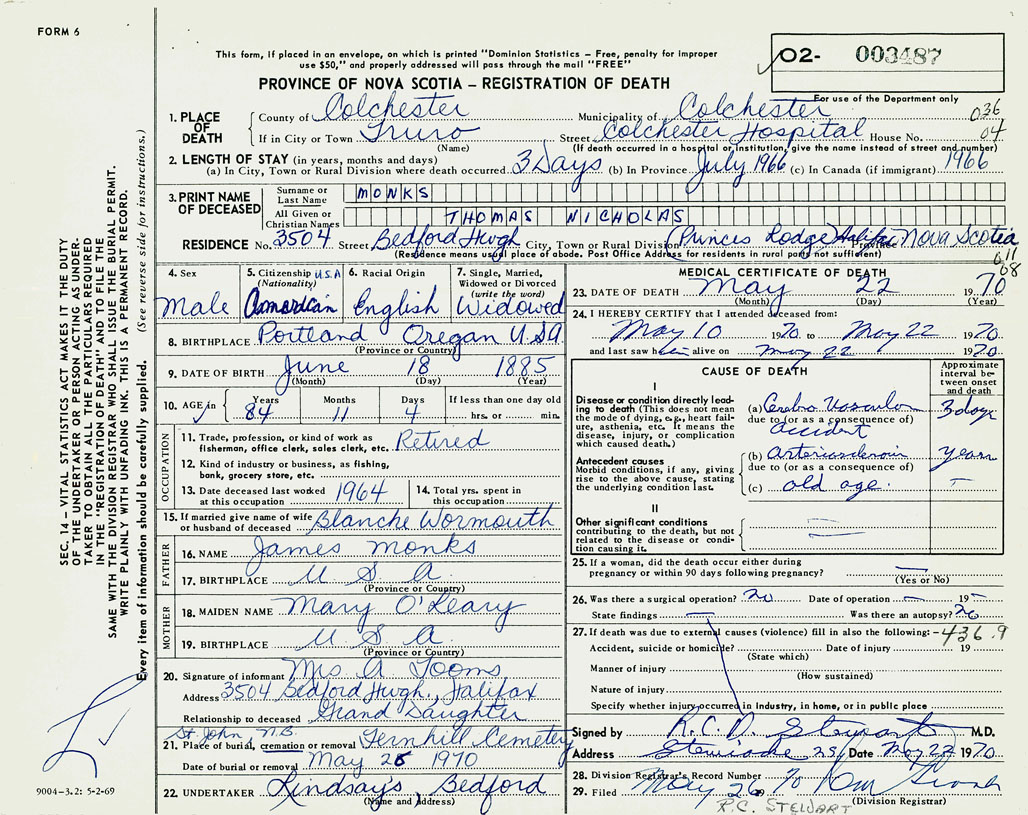 FORM 6
This form, if placed in an envelope, on which is printed "Dominion Statistics – Free, penalty for improper
use $50," and properly addressed will pass through the mail "FREE"
O2- 003487
PROVINCE OF NOVA SCOTIA – REGISTRATION OF DEATH
For use of the Department only
036
04
1. PLACE OF DEATH
County of Colchester Municipality of Colchester
If in City or Town Truro Street Colchester Hospital House No.
(Name) (If death occurred in a hospital or institution, give the name instead of street and number)
2. LENGTH OF STAY (in years, months and days)
(a) In City, Town or Rural Division where death occurred 3 Days (b) In Province July 1966 (c) In Canada (if immigrant) 1966
3. PRINT NAME OF DECEASED
Surname or Last Name MONKS
All Given or Christian Names THOMAS NICHOLAS
RESIDENCE No. 3504 Street Bedford Hwgh City, Town or Rural Division (Princes Lodge) Halifax Province Nova Scotia
(Residence means usual place of abode. Post Office Address for residents in rural parts not sufficient)
611
68
4. Sex Male
5. Citizenship U.S.A (Nationality) American
6. Racial Origin English
7. Single, Married, Widowed or Divorced (write the word) Widowed
8. BIRTHPLACE Portland Oregan U.S.A.
(Province or Country)
9. DATE OF BIRTH June 18 1885
(Month) (Day) (Year)
10. AGE in Years Months Days If less than one day old
84 11 4 hrs. or min.
OCCUPATION
11. Trade, profession, or kind of work as
fisherman, office clerk, sales clerk, etc. Retired
12. Kind of industry or business, as fishing,
bank, grocery store, etc.
13. Date deceased last worked at this occupation 1964
14. Total yrs. spent in this occupation
15. If married give name of wife
or husband of deceased Blanche Wormouth
FATHER
16. NAME James Monks
17. BIRTHPLACE U S A
(Province or Country)
MOTHER
18. MAIDEN NAME Mary O'Leary
19. BIRTHPLACE U S A
(Province or Country)
20. Signature of informant Mrs A Tooms
Address 3504 Bedford Hwgh, Halifax
Relationship to deceased Grand Daughter
St. John, N.B.
21. Place of burial, cremation or removal Fernhill Cemetery
Date of burial or removal May 1970
22. UNDERTAKER Lindsay's, Bedford
(Name and Address)
MEDICAL CERTIFICATE OF DEATH
23. DATE OF DEATH May 22 1970
(Month) (Day) (Year)
24. I HEREBY CERTIFY that I attended deceased from:
May 10 1970 to May 22 1970
and last saw him alive on May 22 1970
CAUSE OF DEATH
Approximate interval between onset and death
I
Disease or condition directly leading
to death (This does not mean
the mode of dying, e.g., heart failure,
asthenia, etc. It means the
disease, injury, or complication
which caused death.)
(a) Cerebro Vascular
due to (or as a consequence of)
accident
3 days
Antecedent causes
Morbid conditions, if any, giving
rise to the above cause, stating
the underlying condition last.
(b) Arteriosclerosis years
due to (or as a consequence of)
(c) old age. –
II
Other significant conditions
contributing to the death, but not
related to the disease or condition
causing it.
25. If a woman, did the death occur either during
pregnancy or within 90 days following pregnancy? –
(Yes or No)
26. Was there a surgical operation? No Date of operation – 19–
State findings – Was there an autopsy? No
27. If death was due to external causes (violence) fill in also the following: – 436.9
Accident, suicide or homicide? Date of injury 19
(State which)
Manner of injury
(How sustained)
Nature of injury
Specify whether injury occurred in Industry, in home, or in public place
Signed by R.C.D. Stewart M.D.
Address Stewiacke Date May 22 1970
28. Division Registrar's Record Number 70
29. Filed May 26
(Division Registrar)
R.C. STEWART
SEC. 14 – VITAL STATISTICS ACT MAKES IT THE DUTY
OF THE UNDERTAKER OR PERSON ACTING AS UNDERTAKER
TO OBTAIN ALL THE PARTICULARS REQUIRED
IN THE "REGISTRATION OF DEATH" AND TO FILE THE
SAME WITH THE DIVISION REGISTRAR WHO SHALL ISSUE THE BURIAL PERMIT.
WRITE PLAINLY WITH UNFADING INK. THIS IS A PERMANENT RECORD.
Every item of information should be carefully supplied. (See reverse side for instructions.)
9004–3.2: 5-2-69